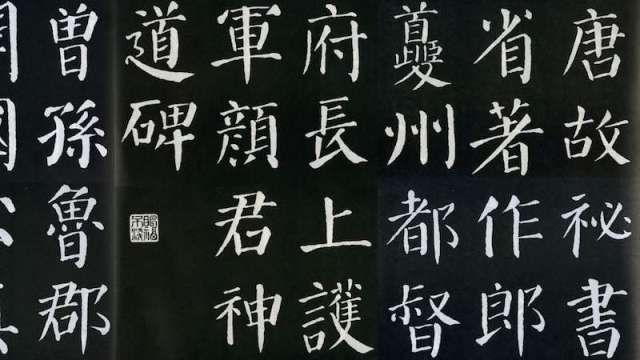 唐故祕書
省著作郎
夔州都督
府長上護
軍顏君神
道碑
曾孫魯郡